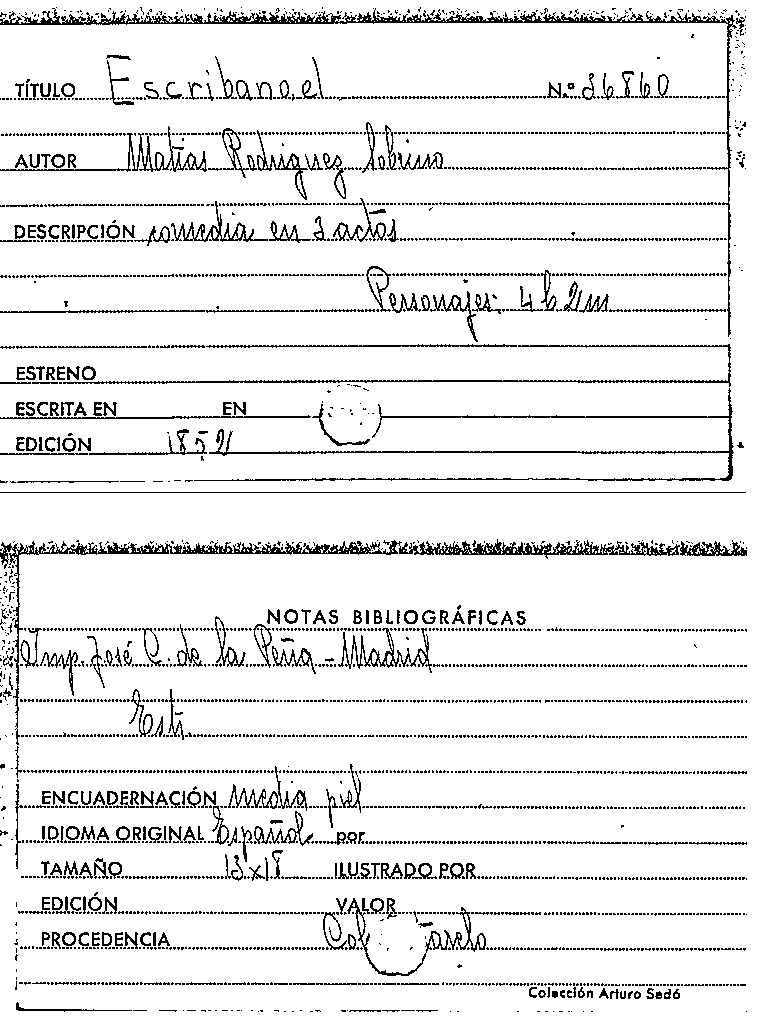 TÍTULO Escribano, el N.º 36860
AUTOR Matias Rodriguez Sobrino
DESCRIPCIÓN comedia en 3 actos
Personajes: 4 h 2 m
ESTRENO
ESCRITA EN EN
EDICIÓN 1852
NOTAS BIBLIOGRÁFICAS
Imp. José C. de la Peña - Madrid
Estr.
ENCUADERNACIÓN Media piel
IDIOMA ORIGINAL Español por
TAMAÑO 13x18 ILUSTRADO POR
EDICIÓN VALOR
PROCEDENCIA
Colección Arturo Sedó